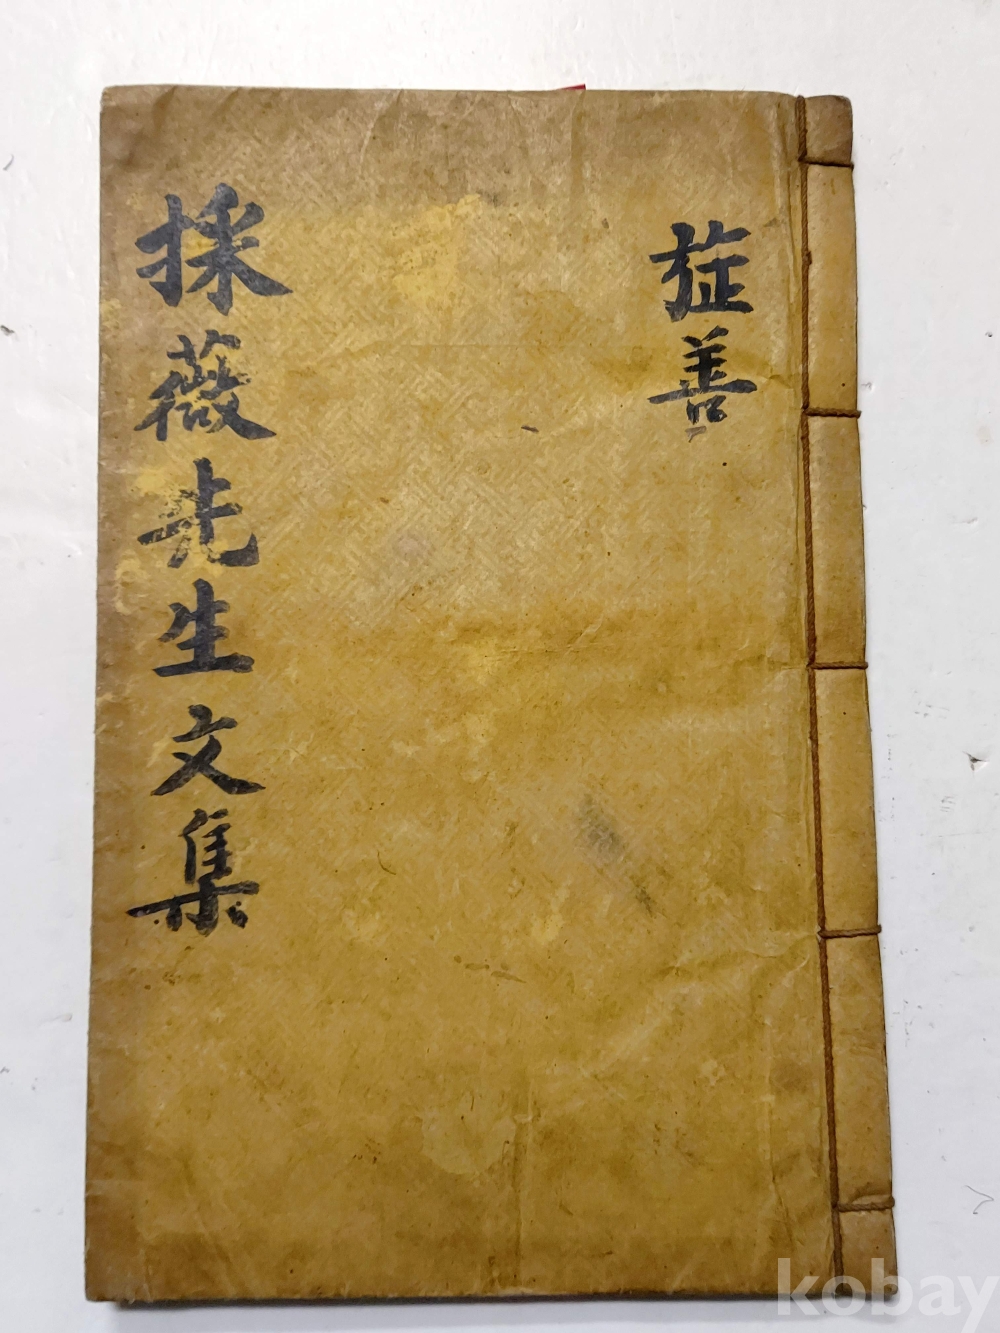 旌善
採薇先生文集
kobay